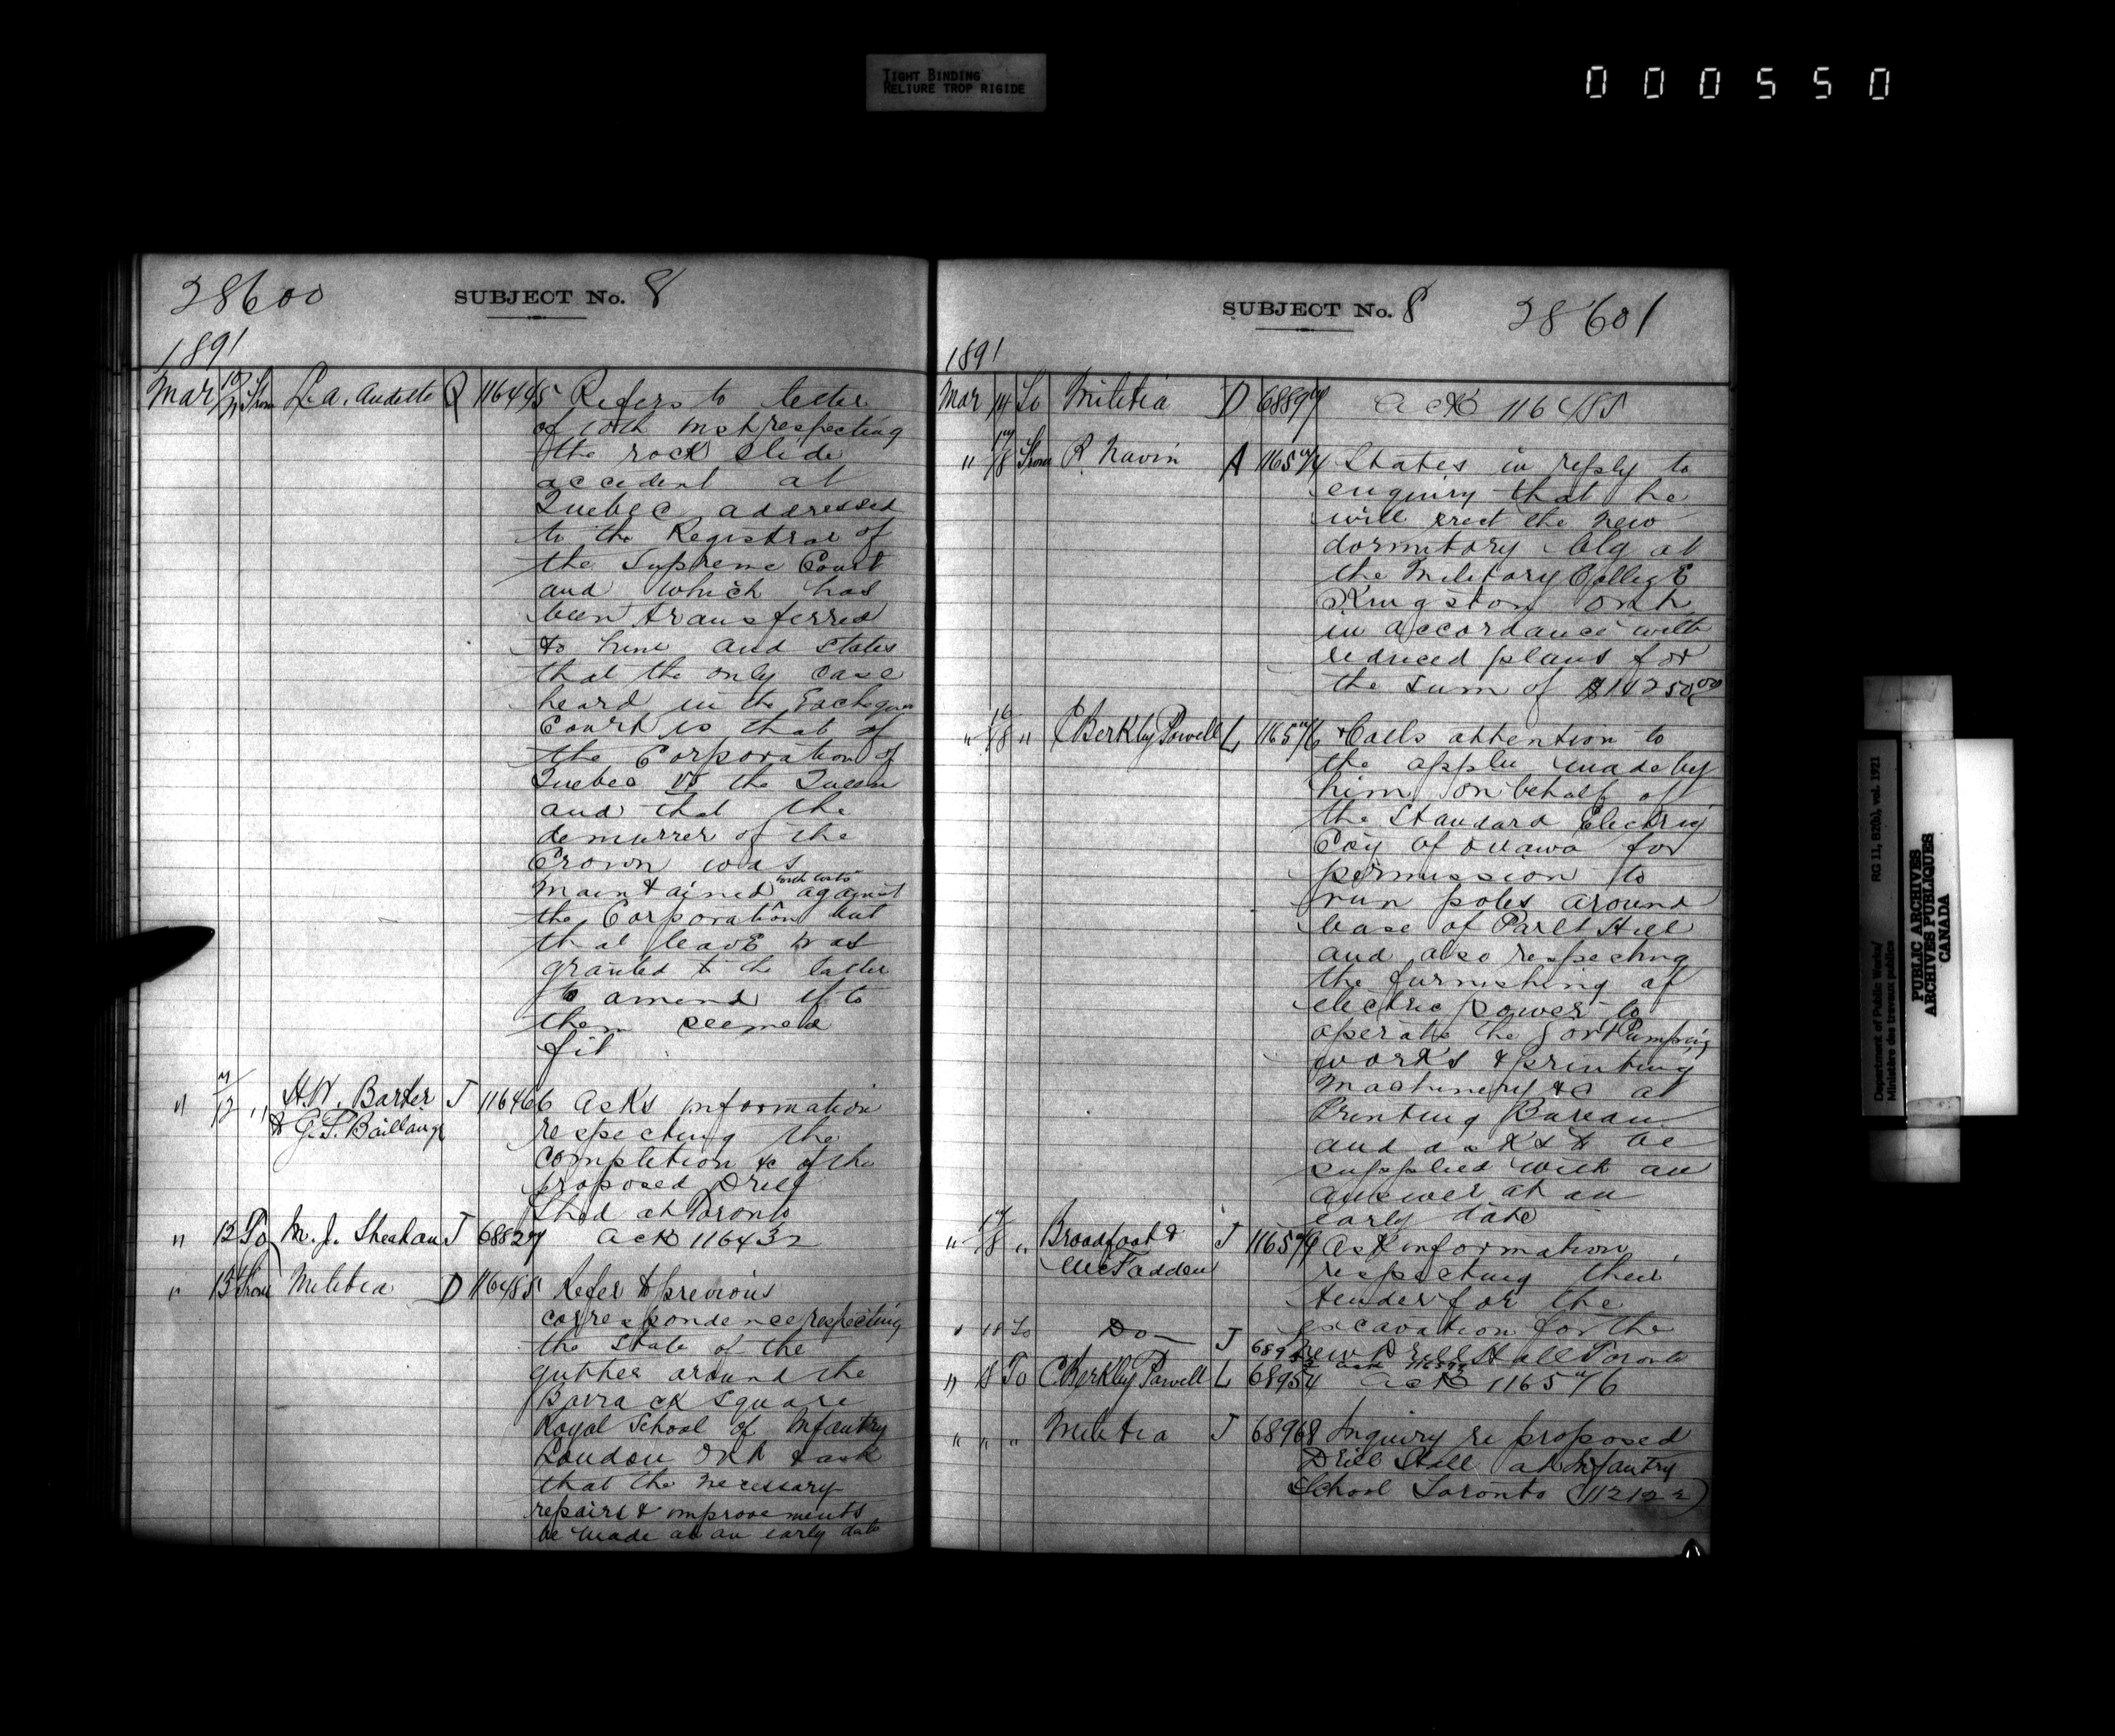 TIGHT BINDING
RELIURE TROP RIGIDE
000550
28600
SUBJECT No. 8
1891
Mar 10/11 From L.A. Audette Q 116445 Refers to letter
of 10th inst respecting
the rock slide
accident at
Quebec addressed
to the Registrar of
the Supreme Court
and which has
been transferred
to him and states
that the only case
heard in the Exchequer
Court is that of
the Corporation of
Quebec vs the Queen
and that the
demurrer of the
Crown was
maintained with costs against
the Corporation but
that leave was
granted to the latter
to amend if to
them seemed
fit
" 11/12 " H.W. Barker J 116466 Asks information
& G.P. Baillairge respecting the
completion &c of the
proposed Drill
Shed at Toronto
" 12 To M.J. Sheehan J 68827 ack 116432
" 13 From Militia D 116485 Refer to previous
correspondence respecting
the state of the
gutter around the
Barrack Square
Royal School of Infantry
London Ont & ask
that the necessary
repairs & improvements
be made at an early date
SUBJECT No. 8
28601
1891
Mar 14 To Militia D 68897 ack 116485
" 17/18 From R. Navin A 116574 States in reply to
enquiry that he
will erect the new
dormitory blg at
the Military College
Kingston Ont
in accordance with
reduced plans for
the sum of $14250.00
" 16/18 " C Berkley Powell L 116576 Calls attention to
the appln made by
him on behalf of
the Standard Electric
Coy of Ottawa for
permission to
run poles around
base of Parlt Hill
and also respecting
the furnishing of
electric power to
operate the Govt Pumping
works & printing
machinery &c at
Printing Bureau
and asks to be
supplied with an
answer at an
early date
" 17/18 " Broadfoot & J 116579 Ask information
McFadden respecting their
tender for the
excavation for the
new Drill Hall Toronto
" 18 To Do J 689 ack
" 18 To C Berkley Powell L 68954 ack 116576
" " " Militia J 68968 Inquiry re proposed
Drill Hall at Infantry
School Toronto (112122)
Department of Public Works/
Ministère des travaux publics
RG 11, B2(b), vol. 1921
PUBLIC ARCHIVES
ARCHIVES PUBLIQUES
CANADA